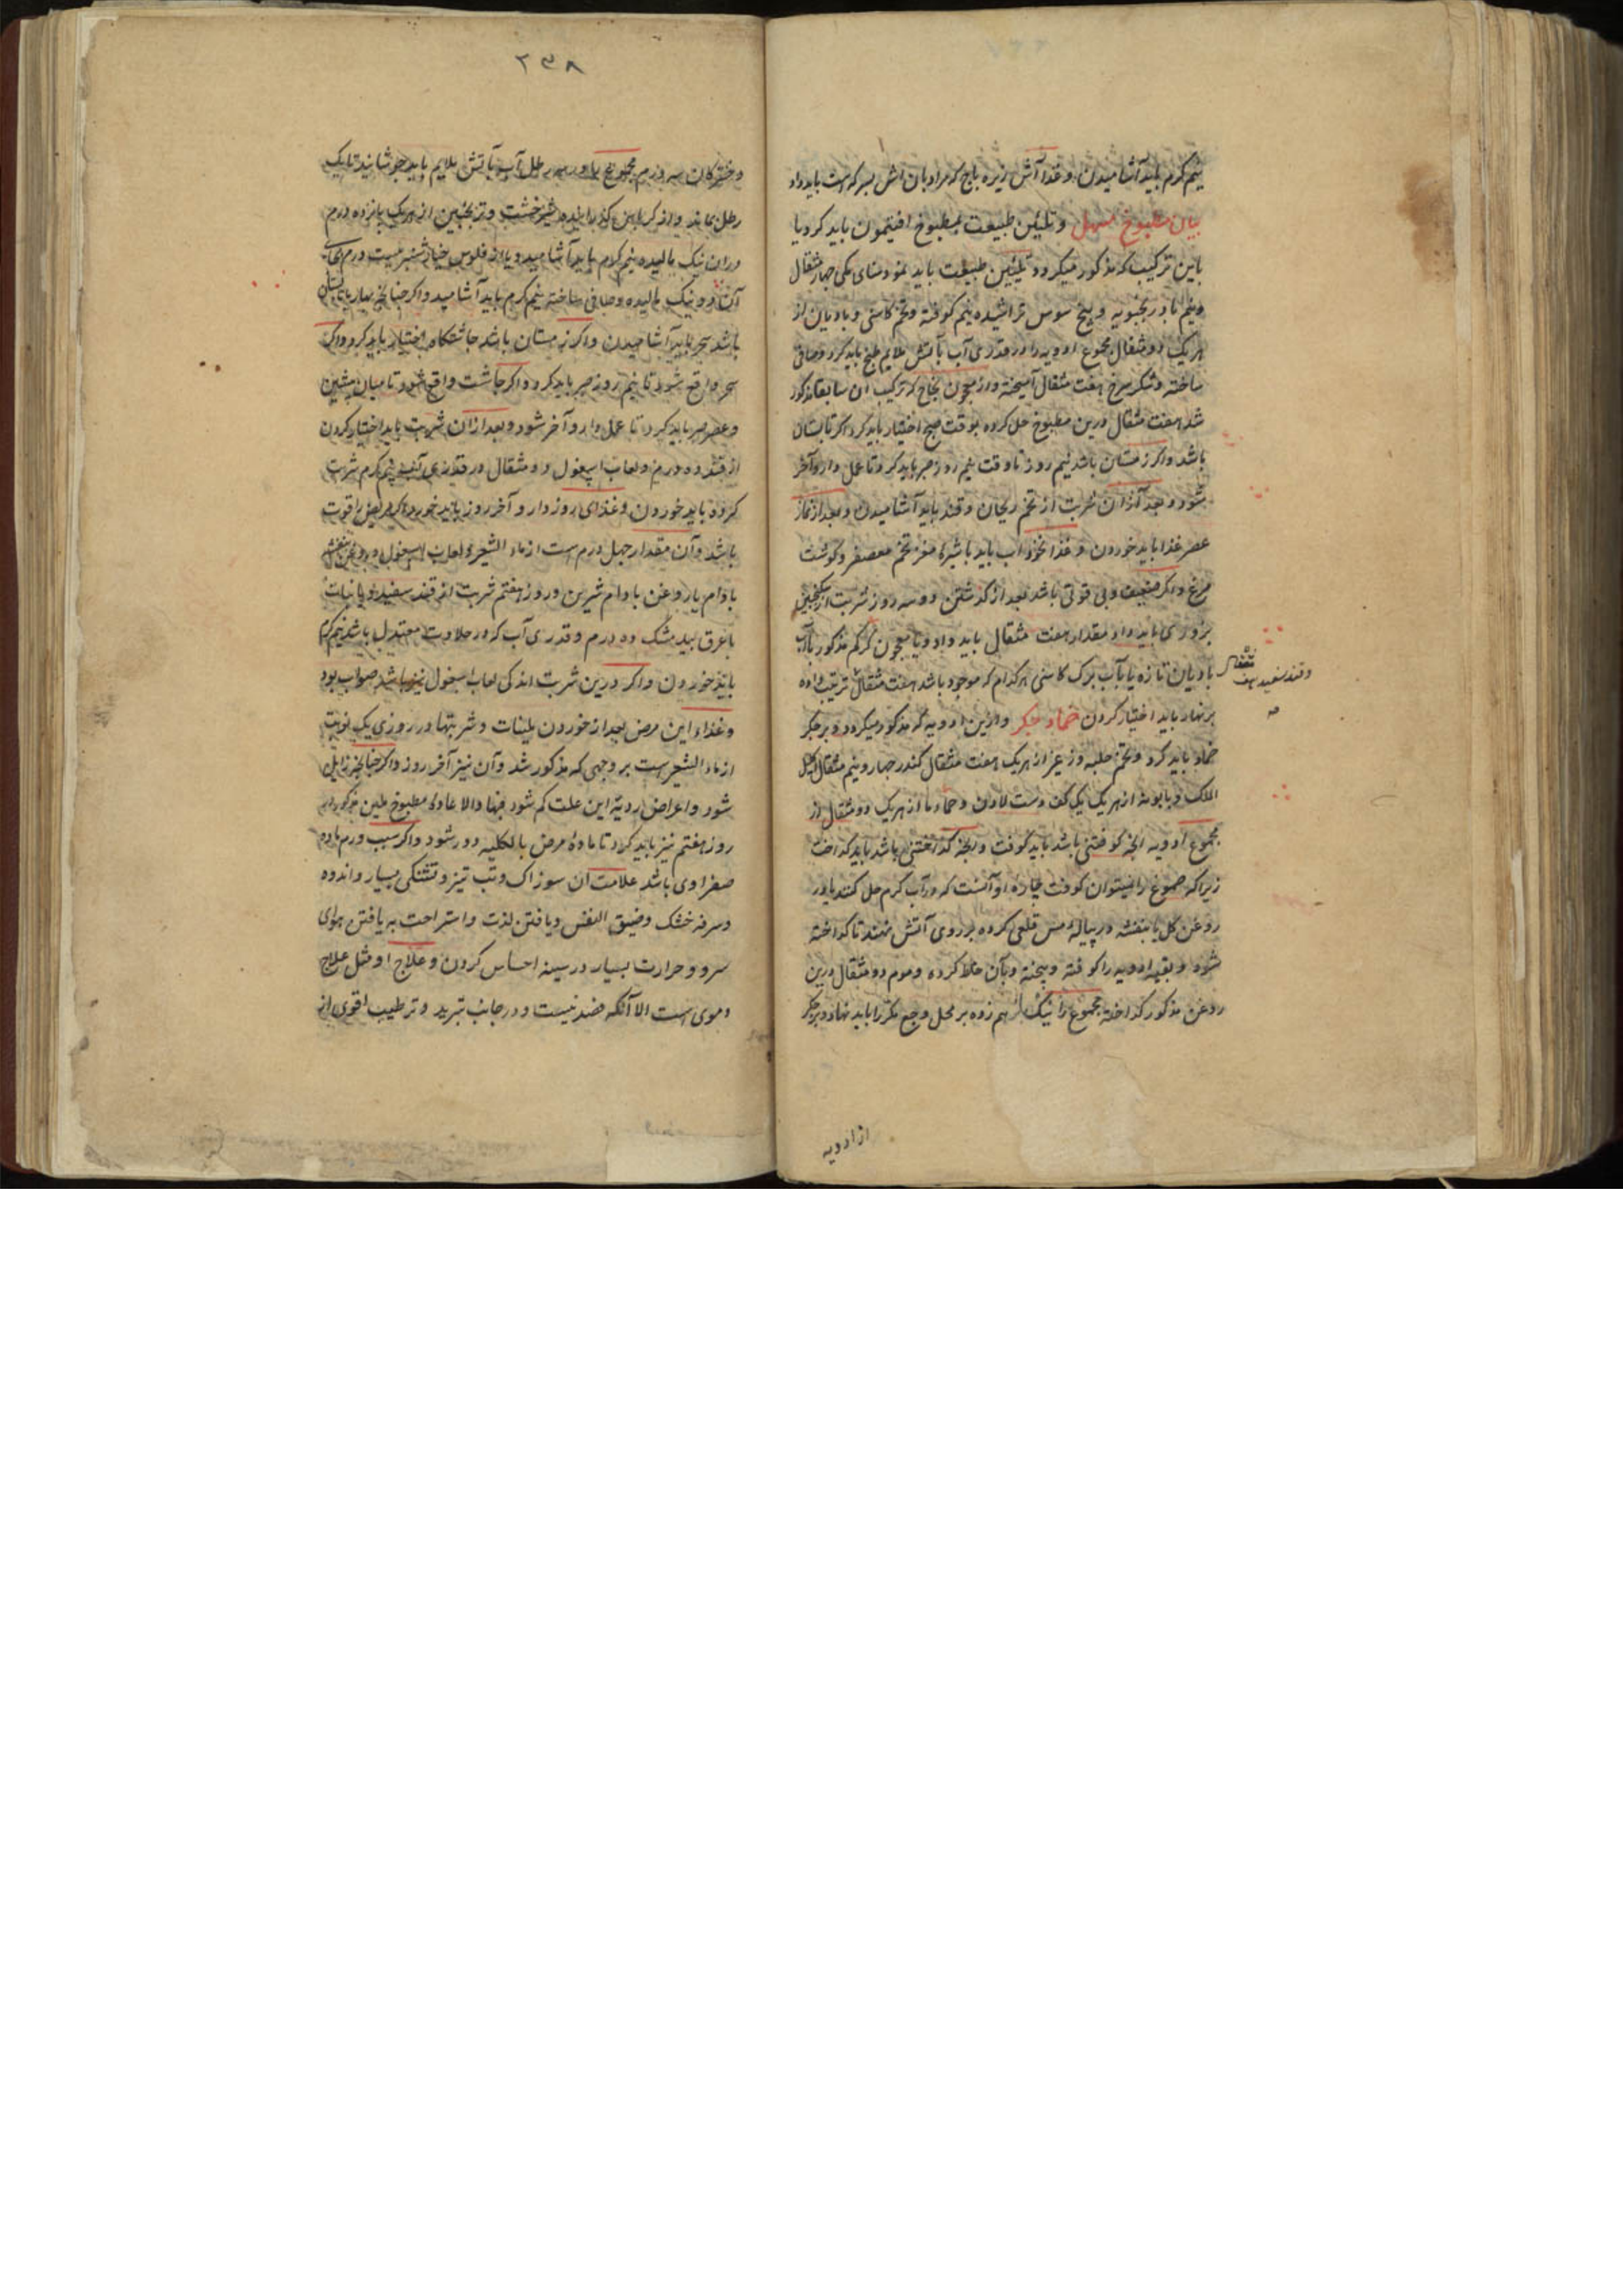 نیم گرم باید آشامیدن و غذا آش زیره باج که مراد بان آش بسرکه است باید داد
بیان مطبوخ مسهل و تلیین طبیعت بمطبوخ افتیمون باید کرد یا
باین ترکیب که مذکور میکردد تلیین طبیعت باید نمود سنای مکی چهار مثقال
و نیم بادرنجبویه و بیخ سوس تراشیده نیم کوفته و تخم کاسنی و بادیان از
هر یک دو مثقال مجموع ادویه را در قدری آب باتش ملایم طبخ باید کرد و صافی
ساخته و شکر سرخ هفت مثقال آمیخته و از معجون نجاح که ترکیب ان سابقا مذکور
شد هفت مثقال درین مطبوخ حل کرده بوقت صبح اختیار باید کرد اکر تابستان
باشد و اکر زمستان باشد نیم روز تا وقت نیم روز صبر باید کرد تا عمل دارو آخر
شود و بعد از ان شربت از تخم ریحان و قند باید آشامیدن و بعد از نماز
عصر غذا باید خوردن و غذا نخوداب باید باشیره مغز تخم معصفر و کوشت
مرغ و اکر ضعیف و بی قوتی باشد بعد از کذشتن دو سه روز شربت از سکنجبین
بزوری باید داد مقدار هفت مثقال باید داد و یا معجون کرکم مذکور باآب
بادیان تازه یا بآب برک کاسنی هر کدام که موجود باشد هفت مثقال ترتیب داده
و قند سفید هفت مثقال
صح
بر نهار باید اختیار کردن ضماد جکر و ازین ادویه که مذکور میکردد و بر جکر
ضماد باید کرد و تخم حلبه و زعفران هریک هفت مثقال کندر چهار و نیم مثقال اکلیل
الملک و بابونه از هریک یک کف دست لادن و حماما از هریک دو مثقال از
مجموع ادویه انچه کوفتنی باشد باید کوفت و انچه کداختنی باشد باید کداخت
زیراکه صموغ را نمیتوان کوفت چاره او آنست که در آب کرم حل کنند یا در
روغن کل یا بنفشه در پیاله مس قلعی کرده بر روی آتش نهند تا کداخته
شود و بقیه ادویه را کوفته و بیخته و بآن خلط کرده و موم دو مثقال درین
روغن مذکور کداخته مجموع را نیک بر هم زده بر محل وجع مکرر باید نهاد و بر جکر
از ادویه
۲۳۸
و خشرکان سه درم مجموع را در سه رطل آب بآتش ملایم باید جوشانید تا یک
رطل بماند و از کرباس کذرانیده شیرخشت و ترنجبین از هریک پانزده درم
دران نیک مالیده نیم کرم باید آشامید و یا از فلوس خیارشنبر بیست درم بجای
آن دو نیک مالیده و صافی ساخته نیم کرم باید آشامید و اکر چنانچه بهار یا تابستان
باشد سحر باید آشامیدن و اکر زمستان باشد چاشتکاه اختیار باید کرد و اکر
سحر واقع شود تا نیم روز صبر باید کرد و اکر چاشت واقع شود تا میان پیشین
و عصر صبر باید کرد تا عمل دارو آخر شود و بعد ازان شربت باید اختیار کردن
از قند ده درم و لعاب اسپغول دو مثقال در قدری آب نیم کرم شربت
کرده باید خوردن و غذای روز دارو آخر روز باید خورد اکر مریض را قوت
باشد و آن مقدار چهل درم است از ماء الشعیر و لعاب اسپغول و روغن بنفشه
بادام یا روغن بادام شیرین و روز هفتم شربت از قند سفید و یا نبات
باعرق بید مشک ده درم و قدری آب که در حلاوت معتدل باشد نیم کرم
باید خوردن و اکر درین شربت اندکی لعاب اسپغول نیز باشد صواب بود
و غذاء این مرض بعد از خوردن ملینات و شربتها در روزی یک نوبت
از ماء الشعیرست بر وجهی که مذکور شد و آن نیز آخر روز و اکر چنانچه زایل
شود و اعراض ردیه این علت کم شود فبها و الا عاده مطبوخ ملین مذکور در
روز هفتم نیز باید کرد تا ماده مرض بالکلیه دور شود و اکر سبب ورم ماده
صفراوی باشد علامت ان سوزاک و تب تیز و تشنکی بسیار و اندوه
و سرفه خشک و ضیق النفس و یافتن لذت و استراحت به یافتن هوای
سرد و حرارت بسیار در سینه احساس کردن و علاج او مثل علاج
دموی است الا آنکه فصد نیست و در جانب تبرید و ترطیب اقوی از